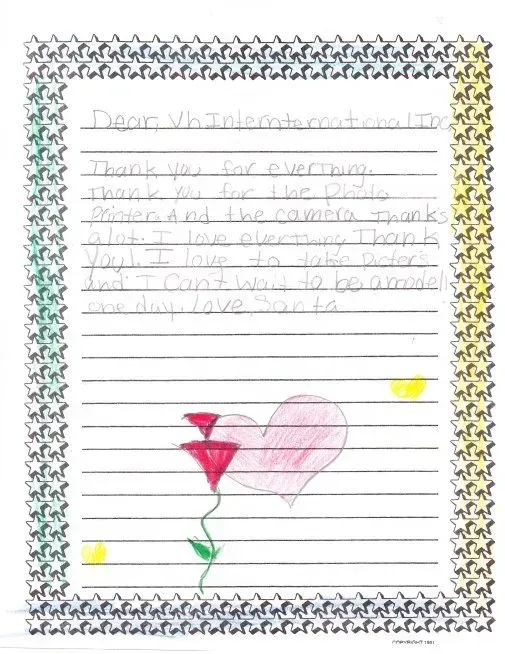 Dear, Vh Internternational Inc
Thank you for everthing.
Thank you for the Photo
Printer. And the camera Thanks
alot. I love everthing Thank
you!. I love to take Picters
and I can't wait to be a modell
one day. Love Santa
COPYRIGHT 1991